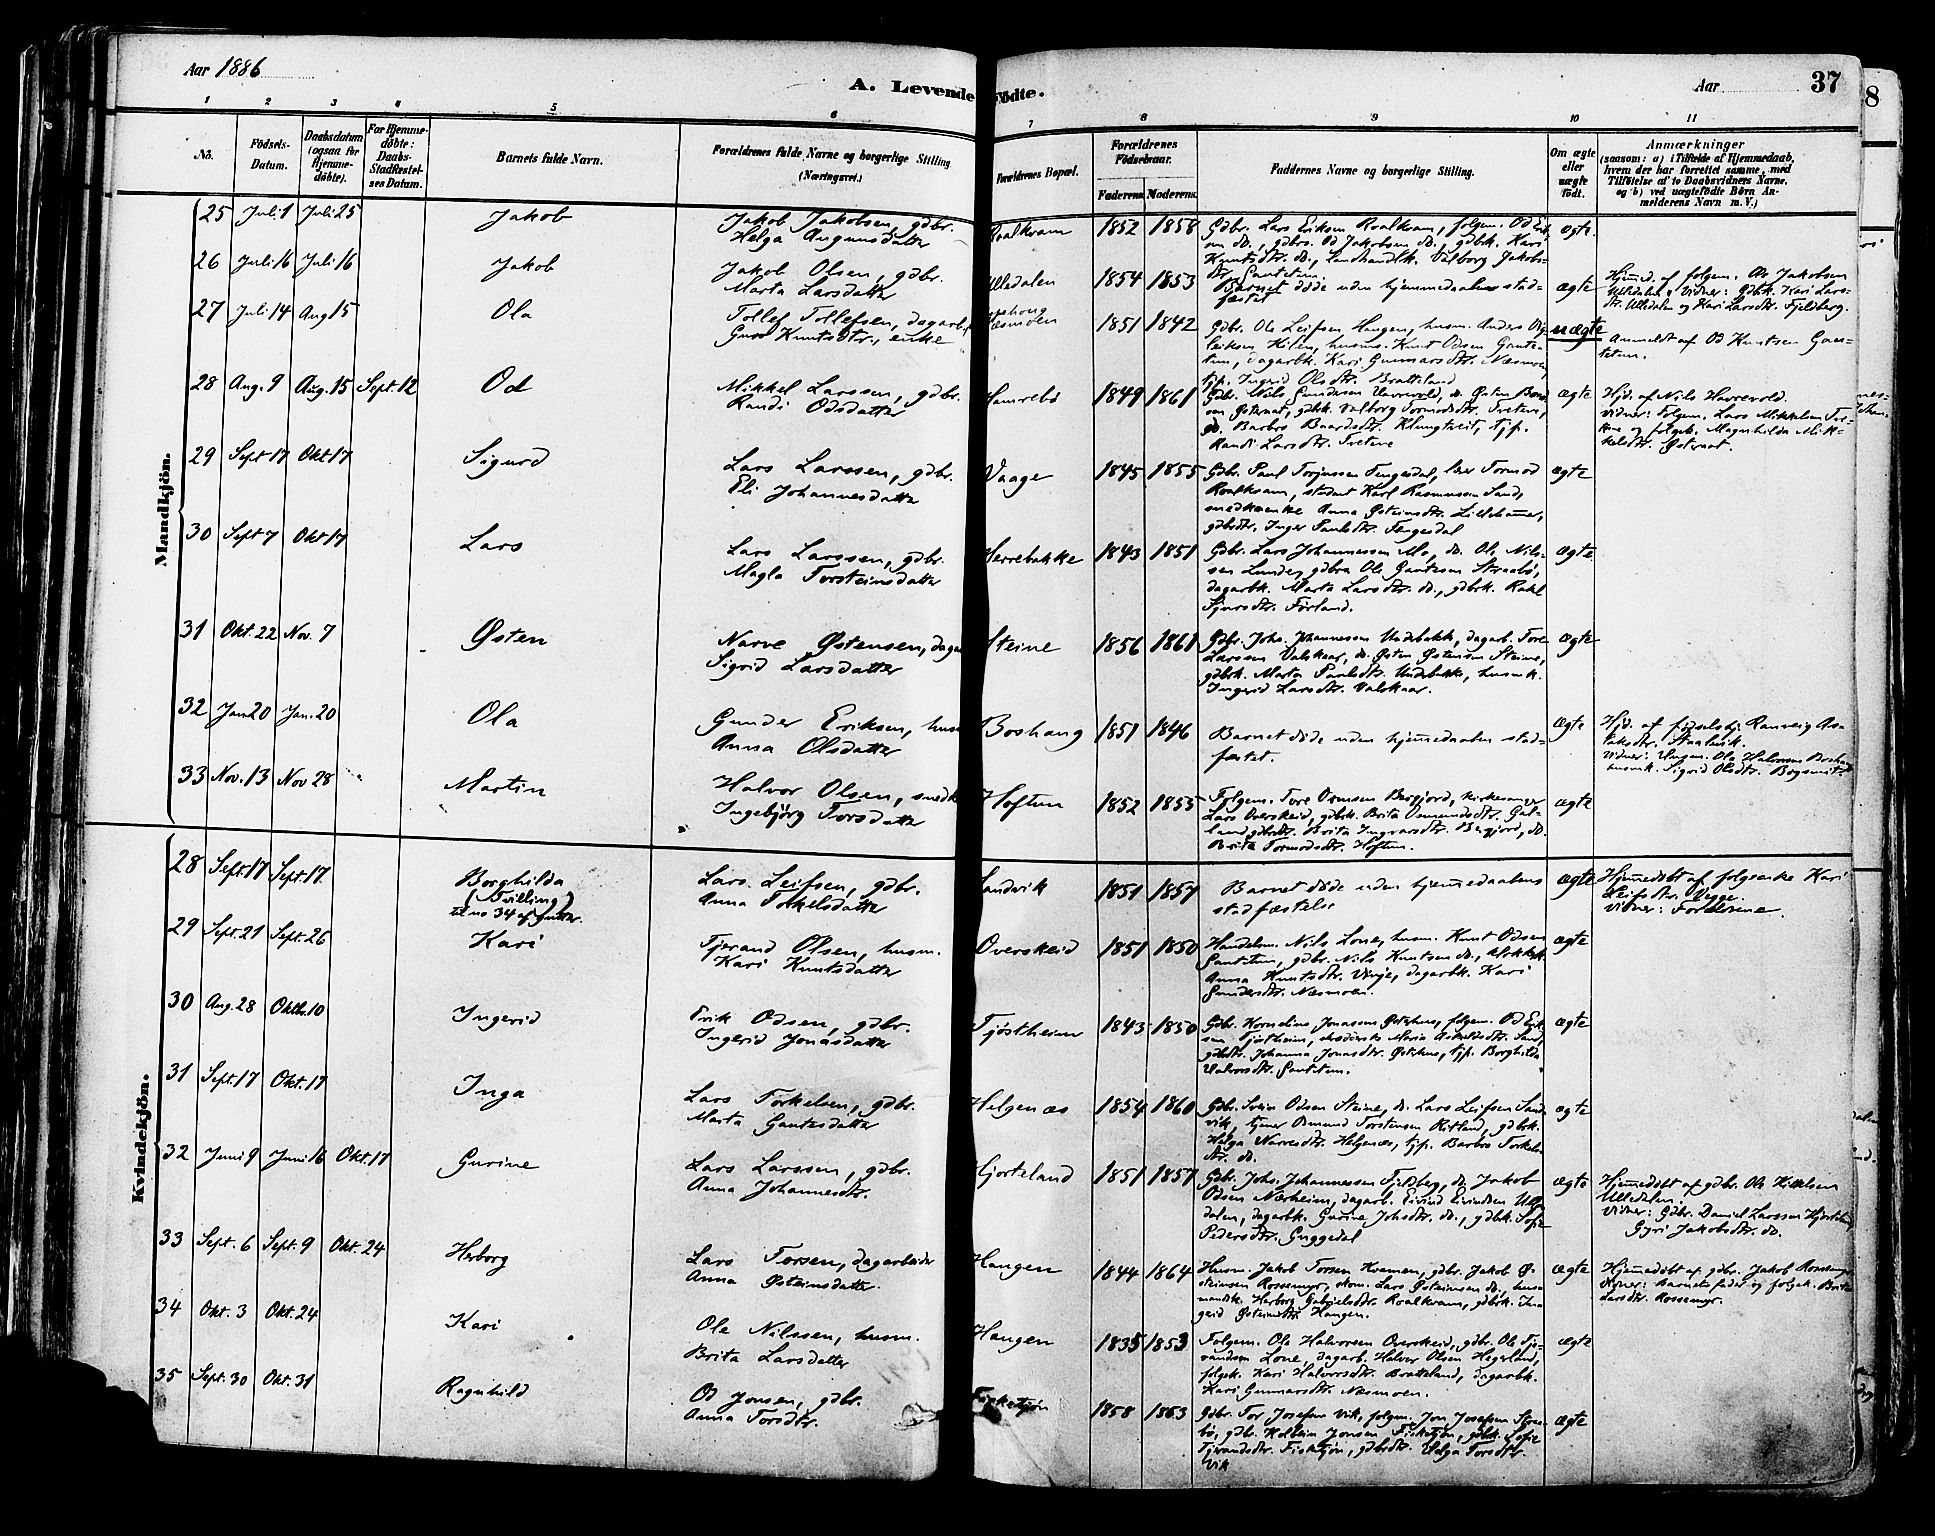 Aar 1886
A. Levende Fødte.
Aar
37
8
1 2 3 4 5 6 7 8 9 10 11
No.
Fødsels-Datum.
Daabsdatum (ogsaa for Hjemme-døbte).
For Hjemme-døbte: Daabs-Stadfæstel-ses Datum.
Barnets fulde Navn.
Forældrenes fulde Navne og borgerlige Stilling (Næringsvei.)
Forældrenes Bopæl.
Forældrenes Fødselsaar.
Faderens. Moderens.
Faddernes Navne og borgerlige Stilling.
Om ægte eller uægte født.
Anmærkninger
(saasom: a) i Tilfælde af Hjemmedaab,
hvem der har forrettet samme, med
Tilføielse af to Daabsvidners Navne,
og b) ved uægtefødte Børn An-
melderens Navn m. V.)
Mandkjön.
25 Juli 1 Juli 25 Jakob
Jakob Jakobsen, gdbr.
Helga Aagunsdatter
Roalkvam 1852 1858
Gdbr. Lars Eriksen Roalkvam, folgem. Od Erik-
sen do., gdbrs. Od Jakobsen do., gdbk. Kari
Knutsdtr. do., Landhandlk. Valborg Jakobs-
dtr. Gautetun.
ægte.
26 Juli 16 Juli 16 Jakob
Jakob Olsen, gdbr.
Marta Larsdatter
Ulledalen 1854 1853
Barnet døde uden hjemmedaabens stad-
fæstet
ægte
Hjmed. af folgem. Ole Jakobsen
Ulledalen, Vidner: Gdbk. Kari Lars-
dtr. Ulledalen og Kari Larsdtr. Fjeldberg.
27 Juli 14 Aug 15 Ola
Tollef Tollefsen, dagarb.
Guro Knutsdtr., enke
Næsmoen 1851 1842
Gdbr. Ole Leifsen Haugen, husm. Anders
Hiten, husms. Knut Odsen Gaute-
tun, dagarbk. Kari Gunnarsdtr. Næsmoen
tjp. Ingerid Olsdtr. Bratteland
uægte
Anmeldt af Od Knutsen Gau-
tetun.
28 Aug. 9 Aug. 15 Sept. 12 Od
Mikkel Larssen, gdbr.
Randi Odsdatter
Hamrebø 1849 1861
Gdbr. Nils Gundersen Havrevold, do. Østen Baard-
sen Østernat, gdbk. Valborg Tormodsdtr. Tvetene,
gd. Barbro Baardsdtr. Klungtveit, tjp.
Randi Larsdtr. Tvetene
ægte
Hjd. af Nils Havrevold.
Vidner: Folgem. Lars Mikkelsen Tve-
tene og folgek. Magnhilda Mik-
kelsdtr. Østernat.
29 Sept 17 Okt 17 Sigurd
Lars Larssen, gdbr.
Eli Johannesdatter
Vaage 1845 1855
Gdbr. Paul Torjussen Fengesdal, lærer Tormod
Roalkvam, student Karl Rasmussen Sand,
smedkoenke Anna Østeinsdtr. Lillehammer,
gdbdtr. Inger Paulsdtr. Fengesdal
ægte
30 Sept 7 Okt 17 Lars
Lars Larssen, gdbr.
Magla Torsteinsdatter
Herrebakke 1843 1851
Gdbr. Lars Johannessen Mo, do. Ole Nils-
sen Lunde, gdbrs Ole Gautesen Straabø,
dagarbk. Marta Larsdtr. do., gdbrk. Rakel
Sjursdtr. Førland.
ægte
31 Okt. 22 Nov. 7 Østen
Narve Østensen, dagar
Sigrid Larsdatter
Steine 1856 1861
Gdbr. Johs. Johannessen Undebakk, dagarb. Tore
Larssen Valskaar, do. Østen Østensen Steine,
gdbrk. Marta Paulsdtr. Undebakk, husmk.
Ingerid Larsdtr. Valskaar.
ægte
32 Jan 20 Jan. 20 Ola
Gunder Eriksen, husm
Anna Olsdatter
Boshaug 1851 1846
Barnet døde uden hjemmedaabens stad-
fæstet.
ægte
Hjd. af fødselshj. Ranveig As-
laksdtr. Staalevik.
Vidner: Ungm. Ole Halvorsen Boshaug
husmk. Sigrid Olsdtr.
33 Nov. 13 Nov 28 Martin
Halvor Olsen, smed
Ingebjørg Torsdatter
Høftun 1852 1855
Folgem. Tore Osmsen Bergjord, kirkesanger
Lars Overskeid, gdbk. Brita Osmundsdtr. Gul-
land, gdbdtr. Brita Ingvarsdtr. Bergjord, do.
Brita Tormodsdtr. Høftun.
ægte
Kvindekjön.
28 Sept. 17 Sept. 17 Borghilda
(Tvilling)
til no 34 af gutter.
Lars Leifsen, gdbr.
Anna Torkelsdatter
Sandvik 1851 1857
Barnet døde uden hjemmedaabens
stadfæstelse
ægte
Hjemmedøbt af folgeenke Kari
Leifsdtr. Vegge.
Vidner: Forældrene.
29 Sept. 21 Sept. 26 Kari
Tjerand Olsen, husm.
Kari Knutsdatter
Overskeid 1851 1850
Handelsm. Nils Lone, husm. Knut Odsen
Gautetun, gdbr. Nils Knutsen do.,
Anna Knutsdtr. Vinje, dagarbk. Kari
Gundersdtr. Næsmoen.
ægte
30 Aug. 28 Oktb. 10 Ingerid
Erik Odsen, gdbr.
Ingerid Jonasdatter
Tjøstheim 1843 1850
Gdbr. Kornelius Jonassen Østehus, folgem. Od Erik-
sen Tjøstheim, Maria Sand,
gdbdtr. Johanna Jonasdtr. Østehus, tjp. Borghilda
Halvorsdtr. Gautetun.
ægte
31 Sept. 17 Okt. 17 Inga
Lars Torkelsen, gdbr.
Marta Gautesdatter
Helgenæs 1854 1860
Gdbr. Svein Odsen Steine, do. Lars Leifsen Sand-
vik, tjener Osmund Torstensen Ritland, gdbk.
Helga Narvesdtr. Helgenæs, tjp. Barbro Torkels-
dtr. do.
ægte
32 Juni 9 Juni 16 Okt. 17 Gurine
Lars Larssen, gdbr.
Anna Johannesdtr.
Hjorteland 1851 1857
Gdbr. Johs. Johannessen Fjeldberg, do. Jakob
Odsen Nærheim, dagarb. Eivind Eivindsen Ulle-
dalen, dagarbk. Gurine Johsdtr. do., gdbk. Sofie
Pedersdtr. Guggedal
ægte
Hjemmedøbt af gdbr. Ole Kittelsen
Ulledalen.
Vidner: Gdbr. Daniel Larssen Hjorteland
Gyri Jakobsdtr. do.
33 Sept. 6 Sept. 9 Okt. 24 Herborg
Lars Torsen, dagarbeider
Anna Østeinsdatter
Haugen 1844 1864
Husm. Jakob Torsen Kvamen, gdbr. Jakob Ø-
steinsen Rossemyr, skom. Lars Østeinsen do., hus-
mandsk. Herborg Gabrielsdtr. Roalkvam, gdbk. In-
gerid Østeinsdtr. Haugen.
ægte
Hjemmedøbt af gdbr. Jakob Rossemyr
Vidner: Barnets fader og folgek. Brita
Larsdtr. Rossemyr.
34 Okt. 3 Okt. 24 Kari
Ole Nilssen, husm.
Brita Larsdatter
Haugen 1835 1853
Folgem. Ole Halvorsen Overskeid, gdbr. Ole Tje-
randsen Lone, dagarb. Halvor Olsen Hegerland,
folgek. Kari Halvorsdtr. Bratteland, dagarbk.
Kari Gunnarsdtr. Næsmoen.
ægte
35 Sept. 30 Okt. 31 Ragnhild
Od Jonsen, gdbr.
Anna Torsdtr.
Fisketjøn 1858 1863
Gdbr. Tor Josefsen Vik, folgem. Jon Josefsen Straa-
bø, gdbr. Kolbein Jonsen Fisketjøn, gdbk. Sofie
Tjerandsdtr. Fisketjøn, gdbsdtr. Helga Torsdtr.
Vik
ægte